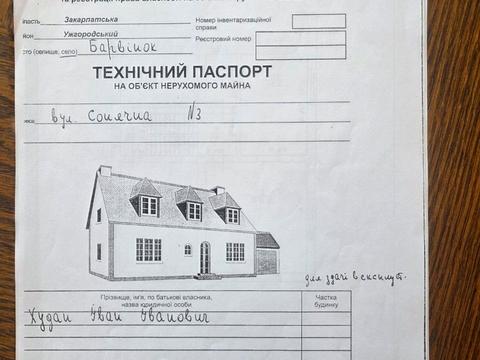 та реєстрації права власності на
область Закарпатська
Номер інвентаризаційної справи
район Ужгородський
Реєстровий номер
місто (селище, село) Барвінок
ТЕХНІЧНИЙ ПАСПОРТ
НА ОБ'ЄКТ НЕРУХОМОГО МАЙНА
вул. Сонячна №3
для здачі в експлуат.
Прізвище, ім'я, по батькові власника, назва юридичної особи
Частка будинку
Худан Іван Іванович